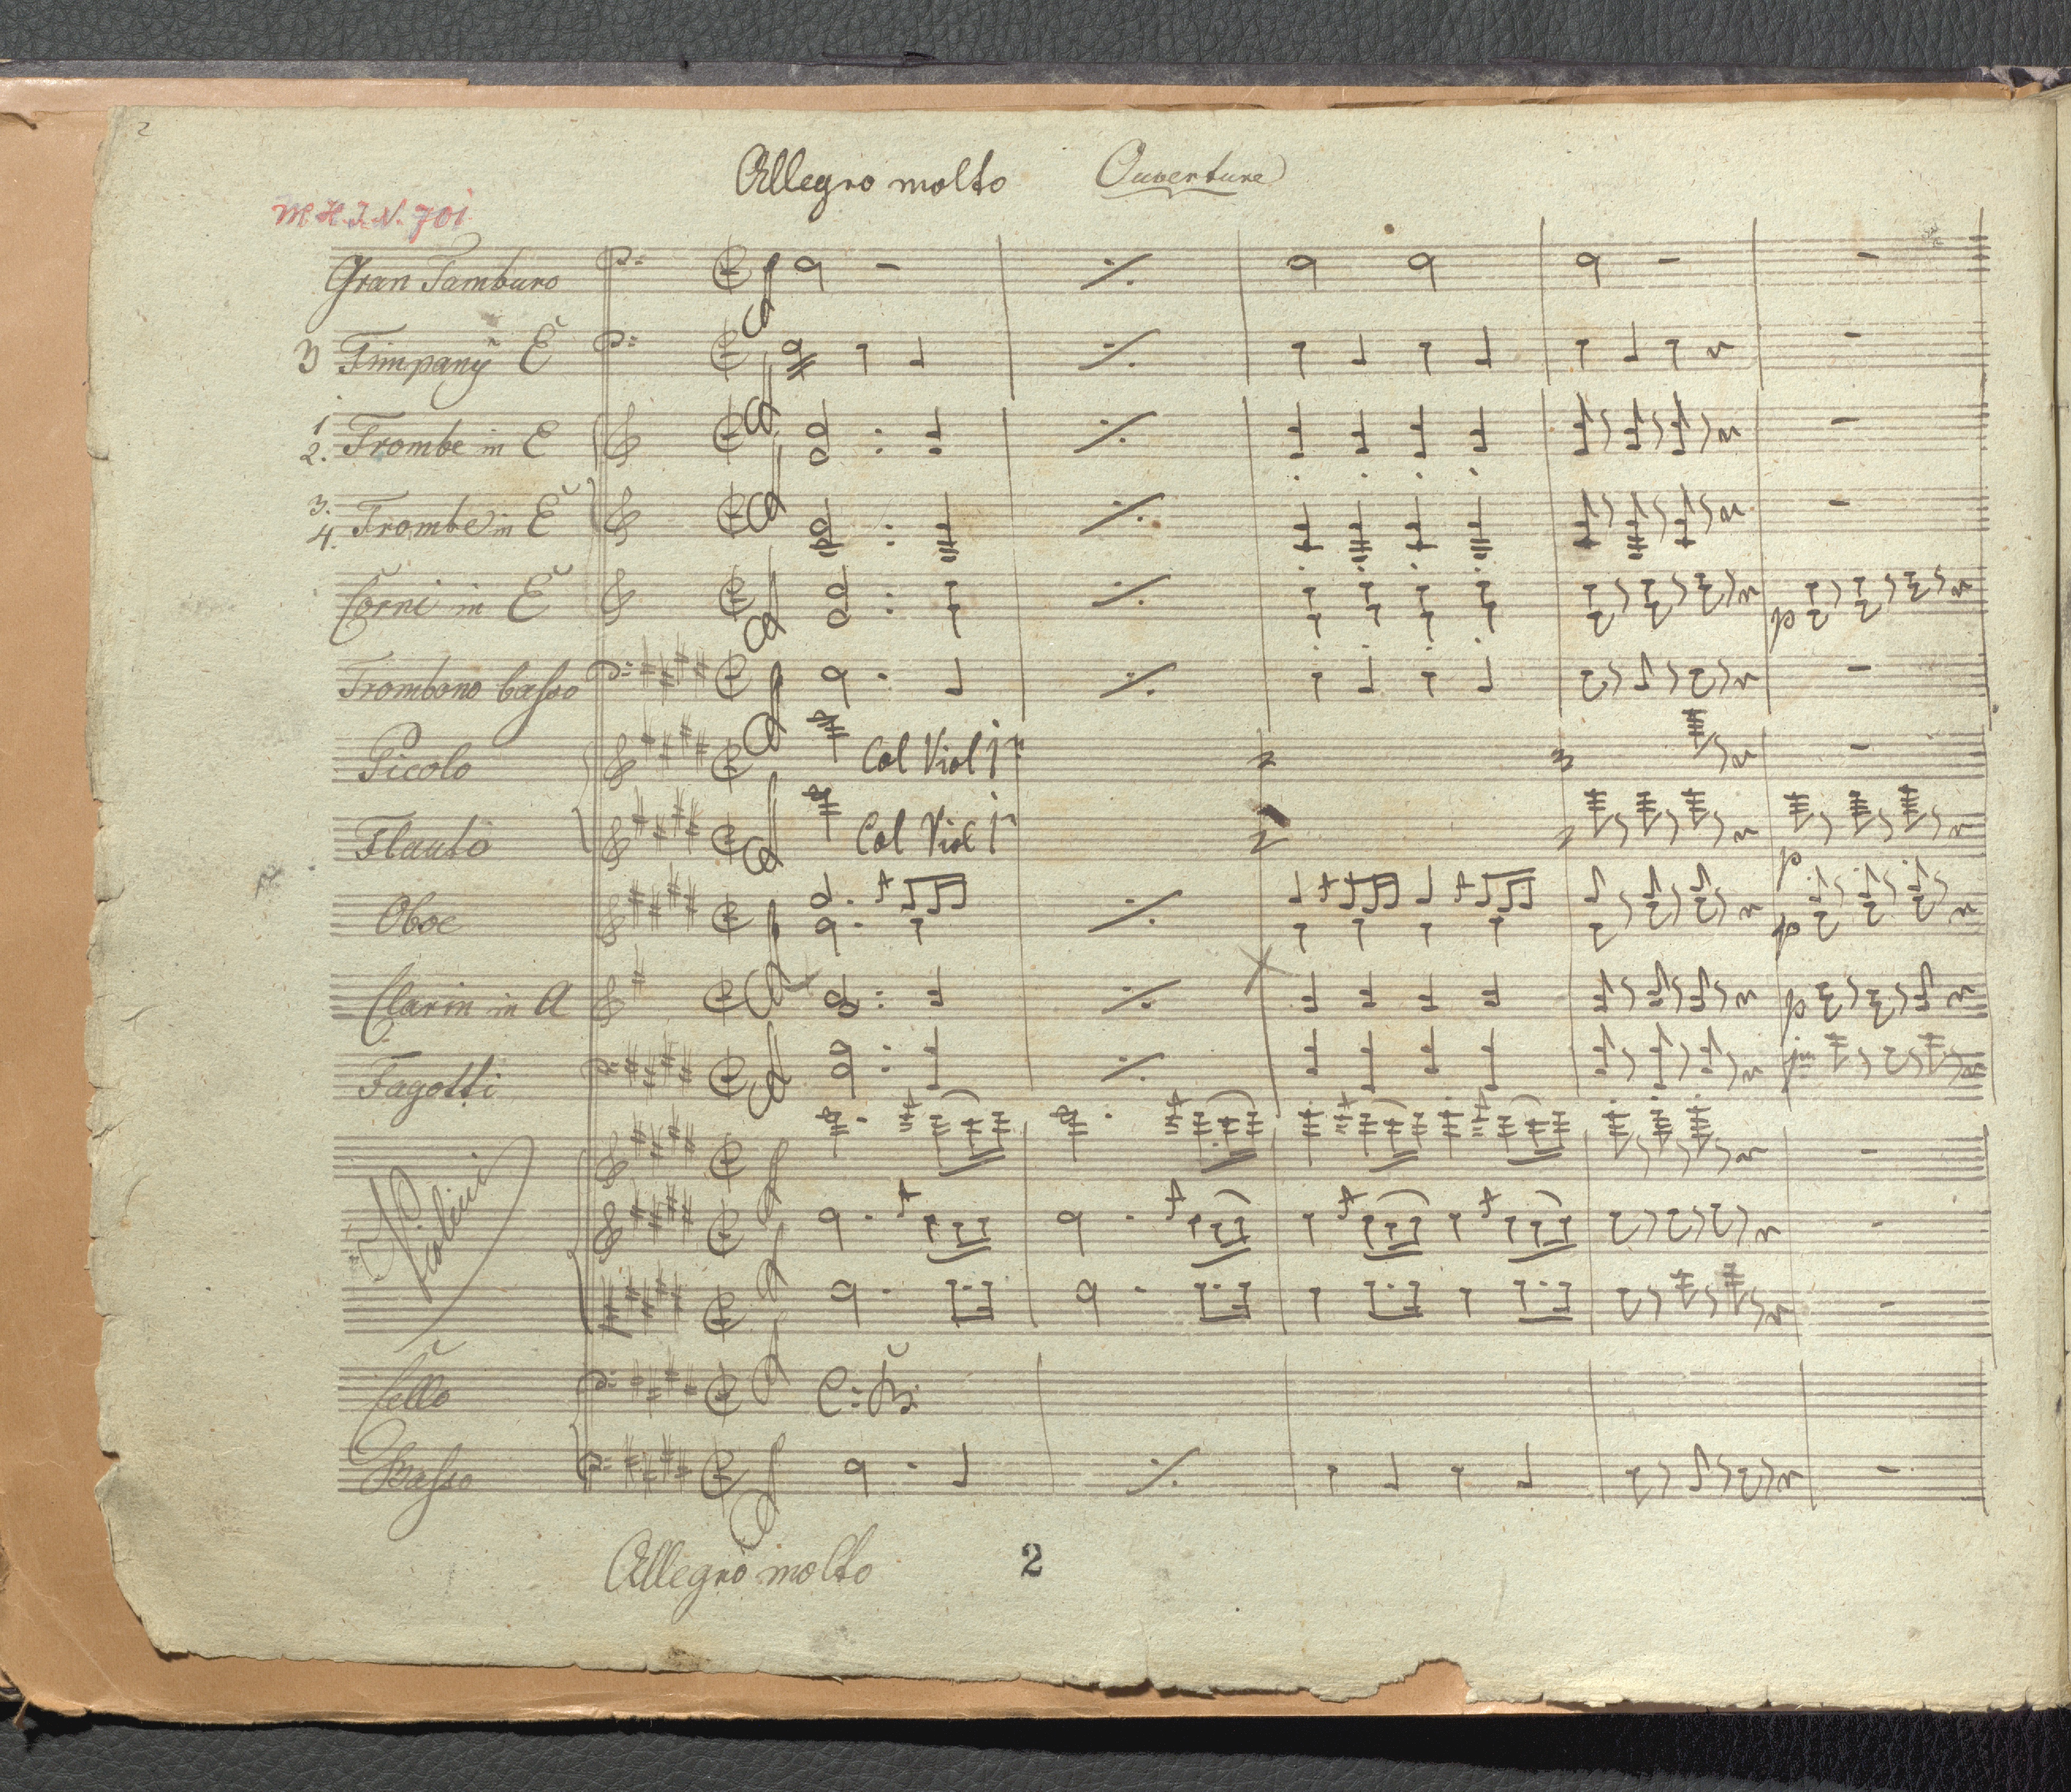 2
Allegro molto Ouverture
M.H.I.N. 701
Gran Tamburo
3 Timpany E
1. 2. Trombe in E
3. 4. Trombe in E
Corni in E
p
Trombono basso
Picolo Col Viol 1º 2 3
Flauto Col Viol 1º 2
p
Oboe
p
Clarin in A
p
Fagotti
Violini
Cello C: B:
Basso
Allegro molto 2